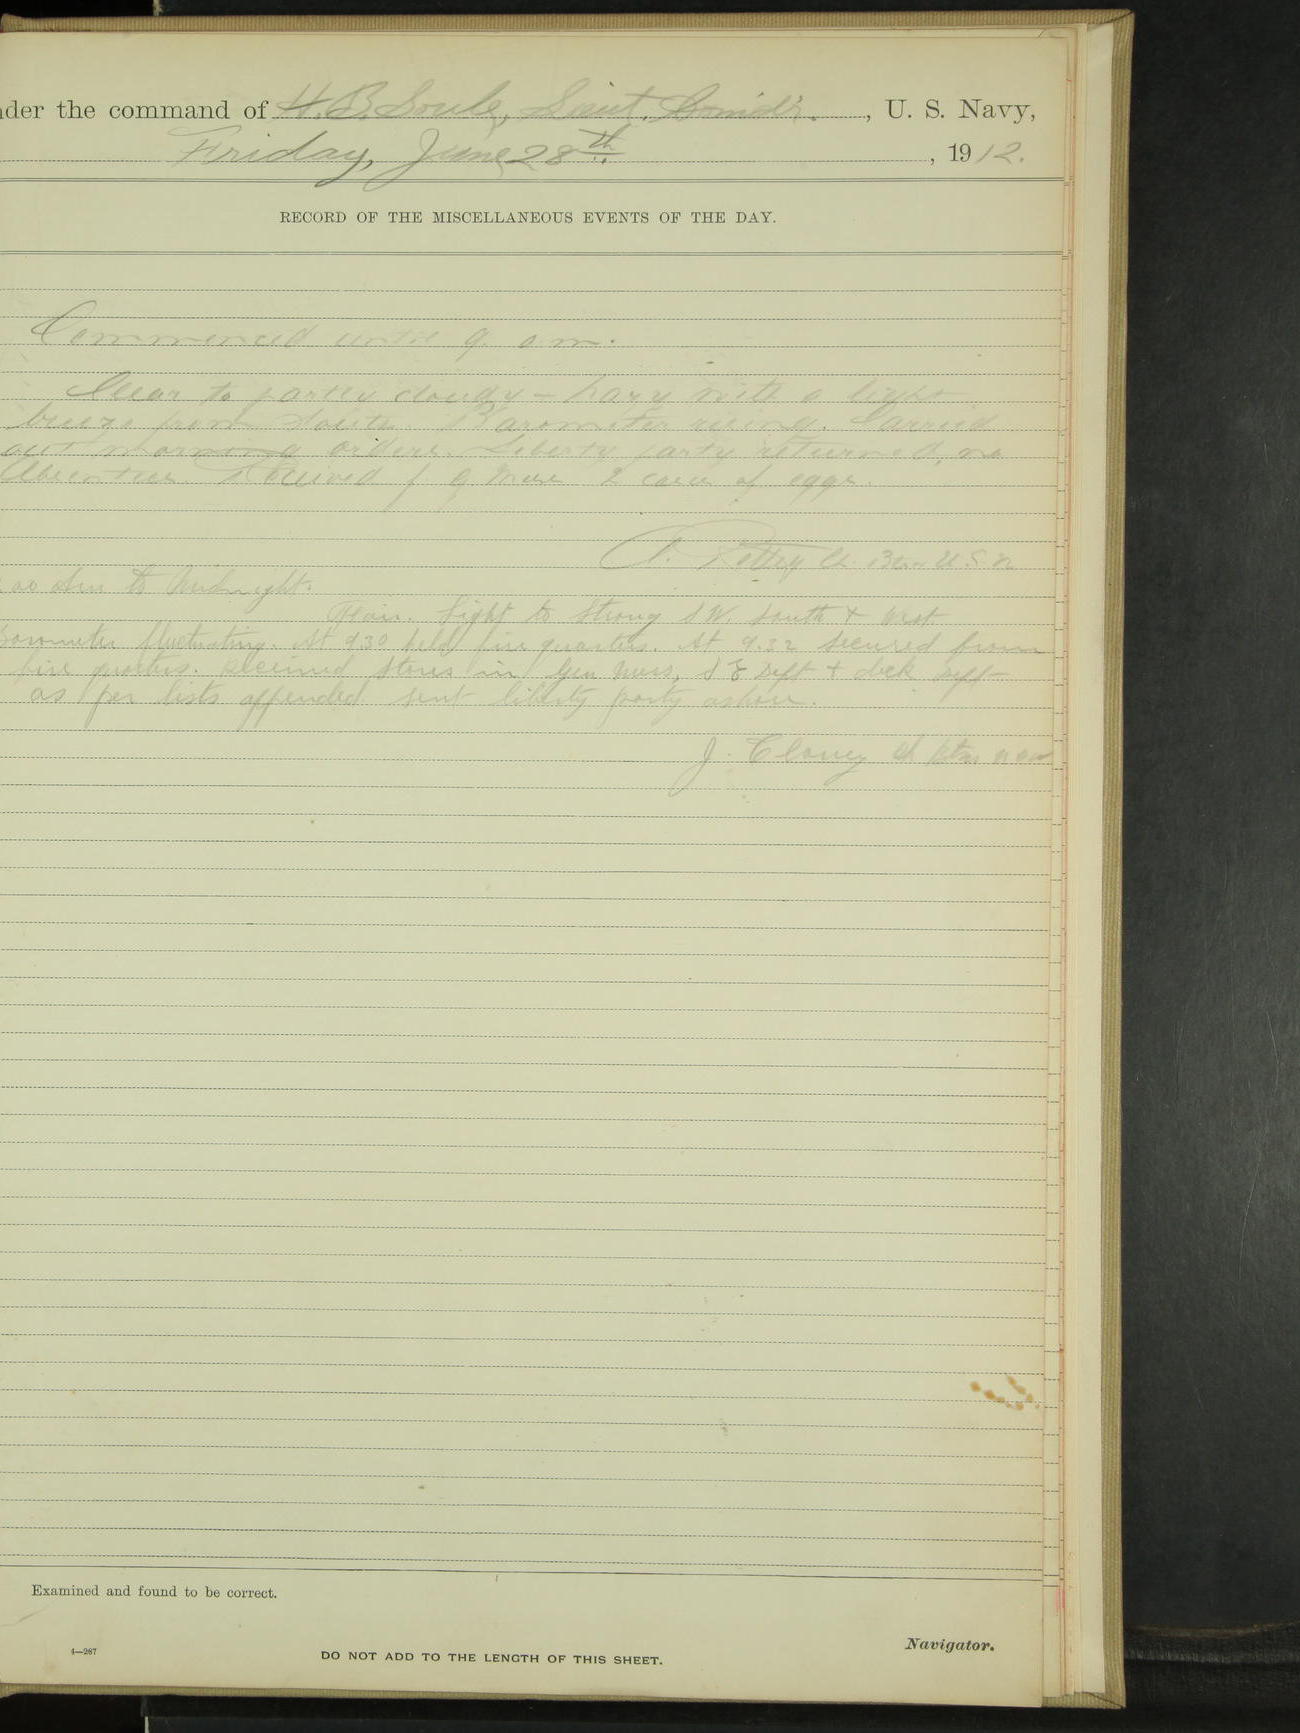 nder the command of H. B. Soule, Lieut. Comd'r., U. S. Navy,
Friday, June 28th, 1912.
RECORD OF THE MISCELLANEOUS EVENTS OF THE DAY.
Commenced until 9 a.m.
Clear to partly cloudy - hazy with a light
breeze from South. Barometer rising. Carried
out morning orders. Liberty party returned, no
absentees. Received f. G Mess 2 cases of eggs.
A. Pettey Ch. Btsn U.S.N
to Midnight.
Fair. Light to strong SW. South & West
Barometer fluctuating. At 9.30 held fire quarters. At 9.32 secured from
fire quarters. Received stores in Gen Mess, S E Dept & deck Dept
as per lists appended sent liberty party ashore.
J. Clancy Ch Btsn USN
Examined and found to be correct.
4—267
DO NOT ADD TO THE LENGTH OF THIS SHEET.
Navigator.